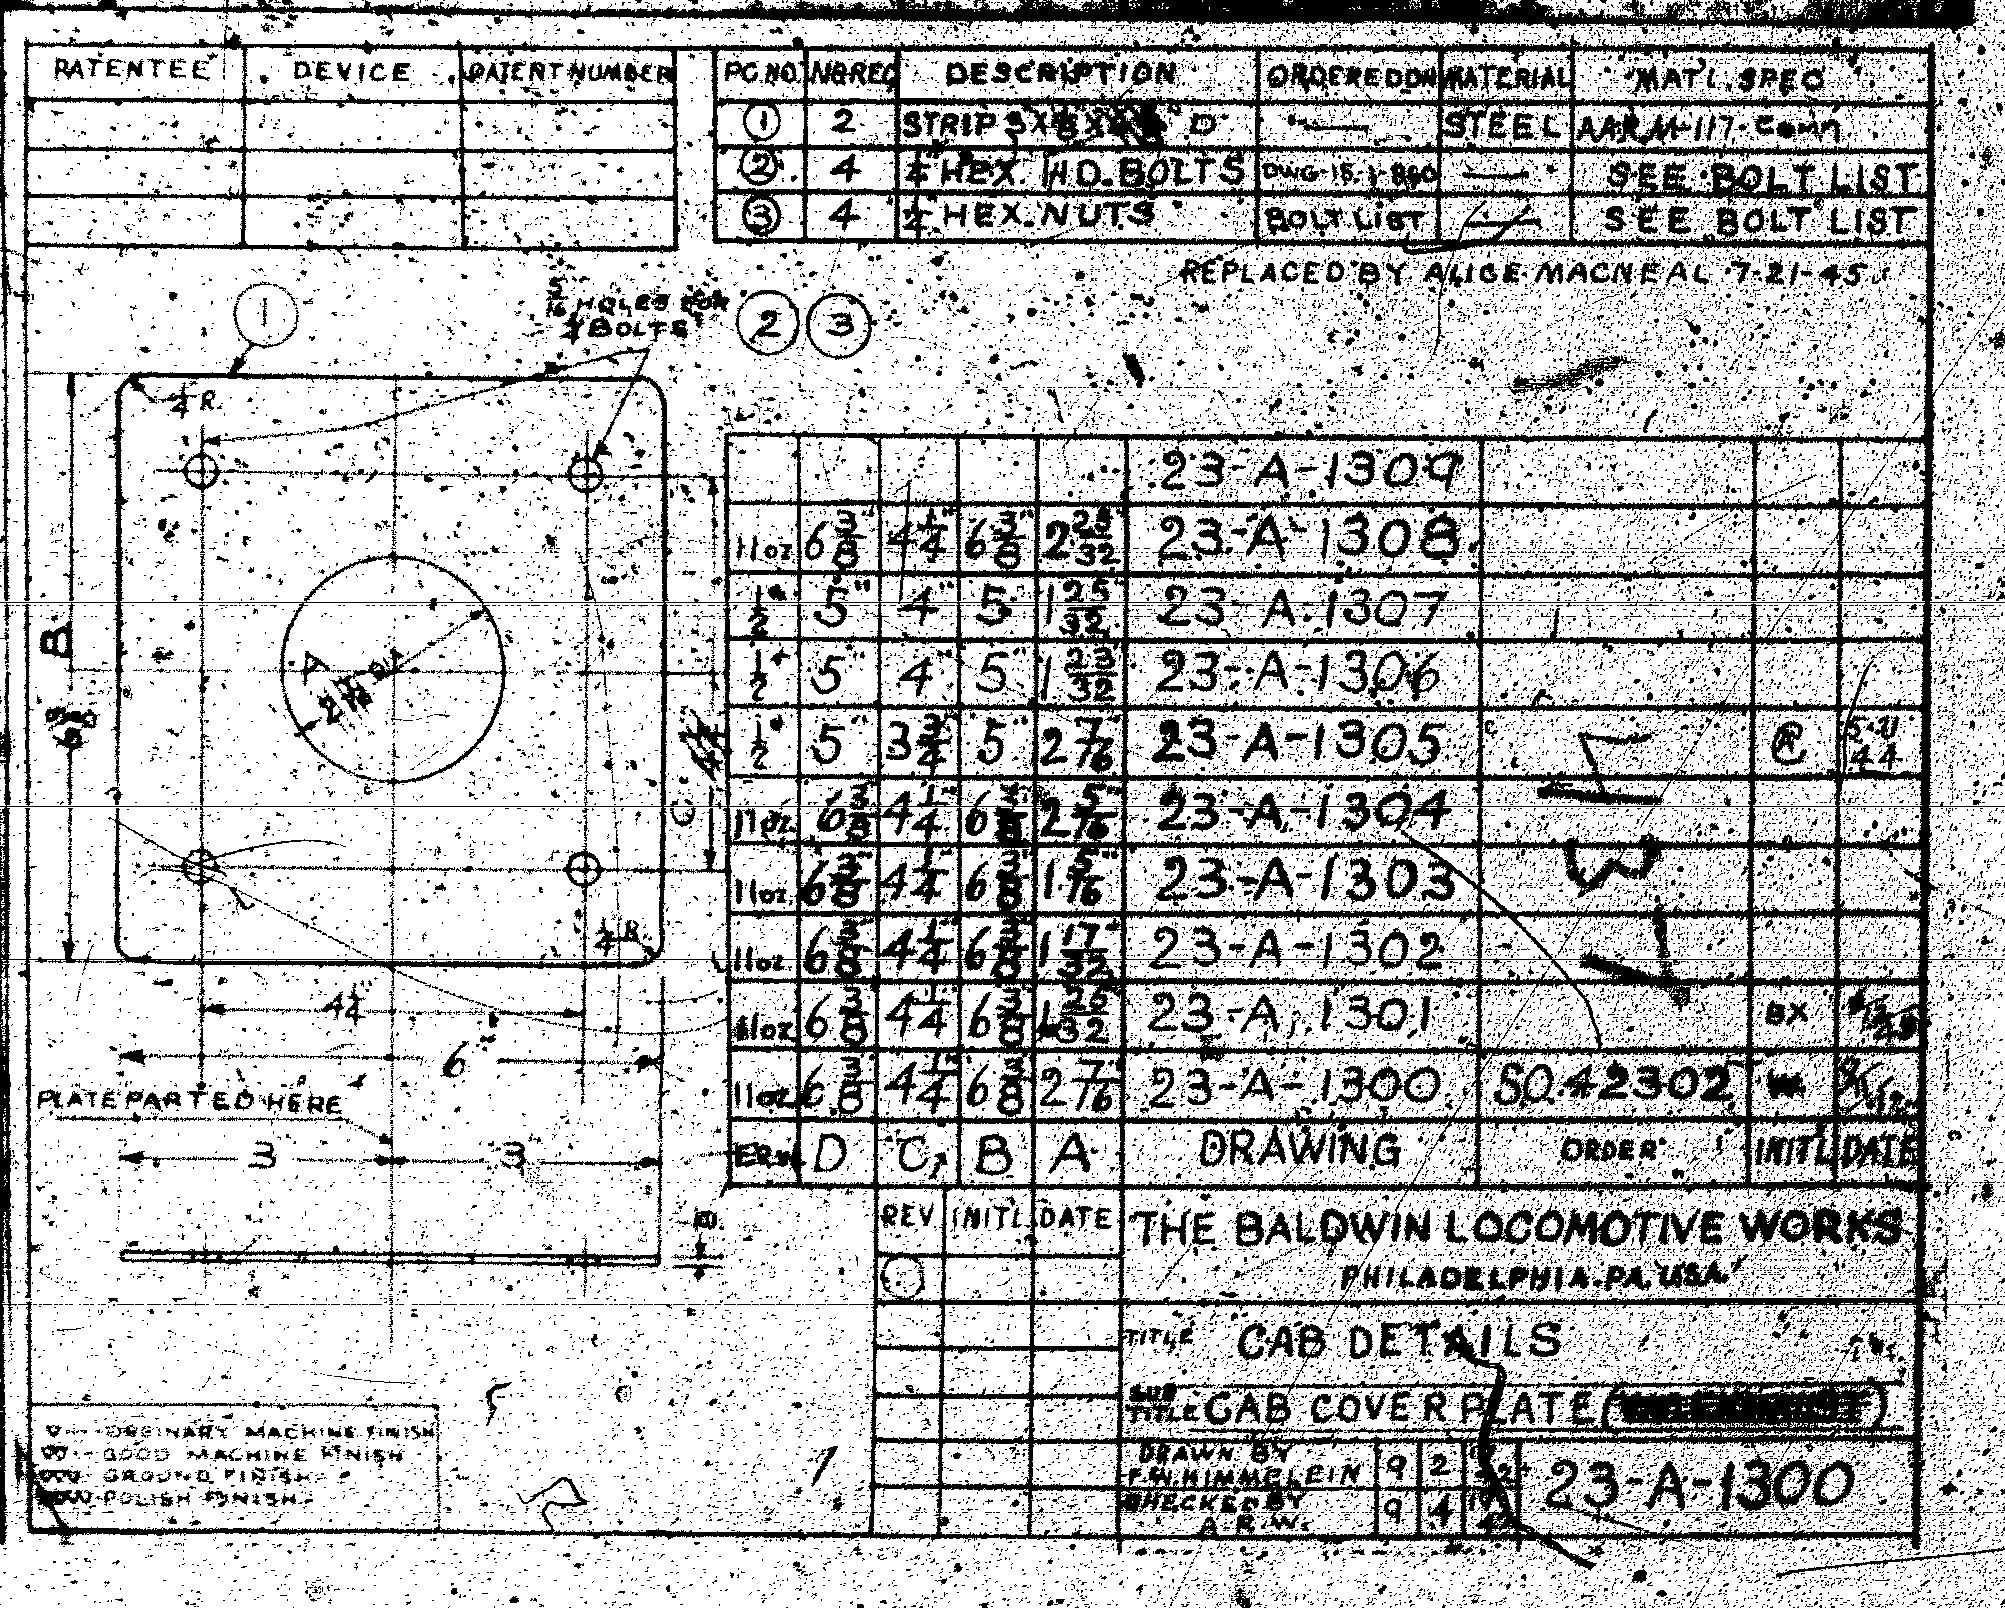 PATENTEE DEVICE PATENT NUMBER
PC.NO. NO.REQ DESCRIPTION ORDERED ON MATERIAL MAT'L SPEC
① 2 STRIP D — STEEL AAR M-117-Comn
② 4 ¼" HEX. HD. BOLTS DWG-15-1-860 — SEE BOLT LIST
③ 4 ¼" HEX. NUTS BOLT LIST — SEE BOLT LIST
REPLACED BY ALICE MACNEAL 7-21-45
① 5/16 HOLES FOR ② ③
¼ BOLTS
¼ R.
B
A
DIA
C
¼ R.
4¼
6
PLATE PARTED HERE
3 3
23-A-1309
11oz 6⅜" 4¼" 6⅜" 2 25/32" 23-A-1308
½" 5" 4" 5" 1 25/32" 23-A-1307
½" 5" 4 5" 1 23/32" 23-A-1306
½" 5" 3¾" 5" 2 7/16" 23-A-1305 5-11 44
11oz. 6⅜" 4¼" 6⅜" 2 5/16" 23-A-1304
11oz 6⅜" 4¼" 6⅜" 1 5/16" 23-A-1303
11oz 6⅜" 4¼" 6⅜" 1 17/32" 23-A-1302
11oz 6⅜" 4¼" 6⅜" 23-A-1301 BX
11oz 6⅜" 4¼" 6⅜" 2 7/16" 23-A-1300 SO. 42302
D C B A DRAWING ORDER INIT'L DATE
REV INIT'L DATE
THE BALDWIN LOCOMOTIVE WORKS
PHILADELPHIA. PA. USA.
TITLE CAB DETAILS
SUB TITLE CAB COVER PLATE
DRAWN BY
F.W. HIMMELEIN 9 2 42
CHECKED BY
A.R.W. 9 4 42
23-A-1300
ORDINARY MACHINE FINISH
GOOD MACHINE FINISH
GROUND FINISH
POLISH FINISH